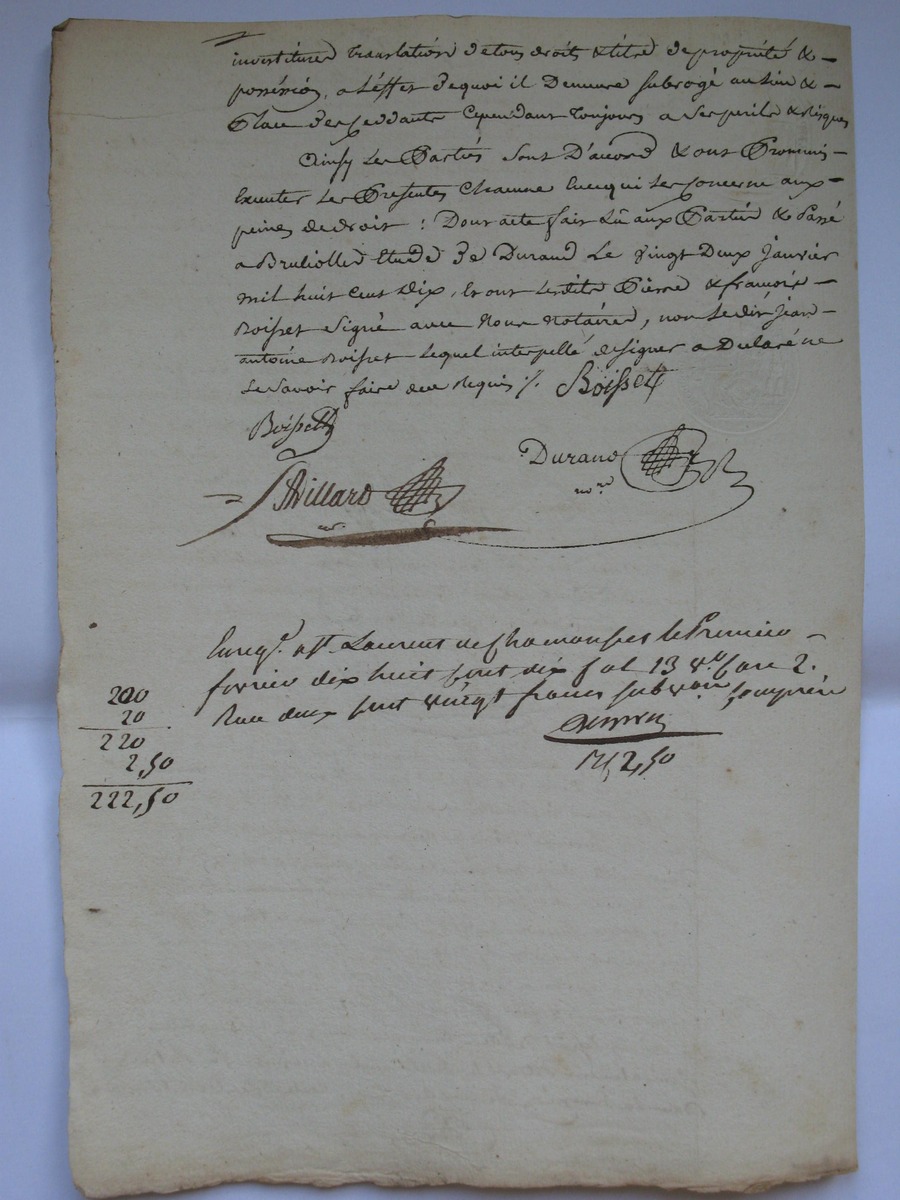 investiture translation de tous droits & titre de propriété & -
possession, a l'effet de quoi il Demeure subrogé au lieu &
Place des Ceddants Cependant toujours a ses perils & risques
Ainsy les Partiés sont D'acord & ont Promis -
Executer les Presentes Chacune En ce qui les concerne aux
peines de droit : Dont acte fait Lû aux Partiés & Passé
a Brullolles Etude De Durand Le vingt Deux janvier
mil huit cent Dix, & ont lesdits Piérre & françois -
Boisset signé avec Nous Notaires, non ledit jean
antoine Boisset Lequel interpellé de signer a Déclaré ne
Le savoir faire de ce Requis /. Boisset
Boisset
Durand
nore
Villard
Enregé. a St Laurent de Chamousset le Premier -
fevrier dix huit cent dix fol 13 vo Case 2.
Reçu deux cent vingt francs subvon Comprise
200
20
220
2,50
222,50
2,50